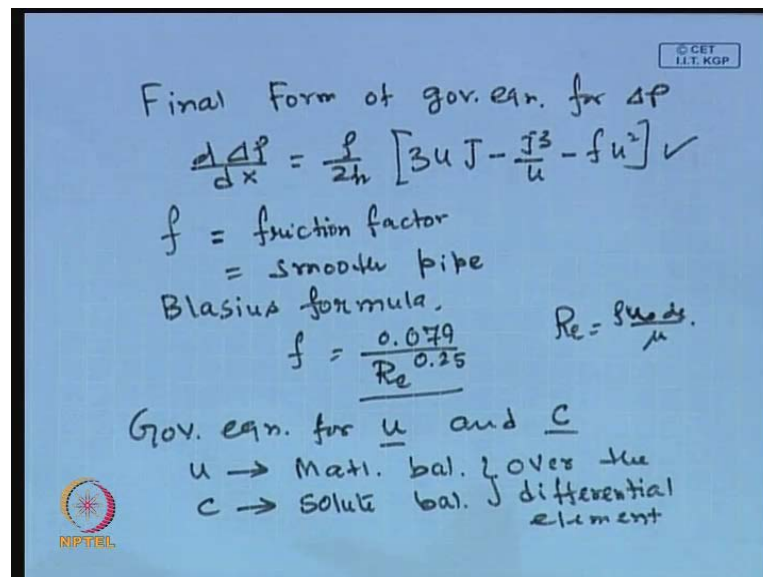 © CET
I.I.T. KGP
Final Form of gov. eqn. for ΔP
dΔP/dx = ρ/2h [3uJ - J³/u - fu²] ✓
f = friction factor
= smooth pipe
Blasius formula.
f = 0.079/Re^0.25 Re = ρu₀de/μ.
Gov. eqn. for u and c
u → Matl. bal. } over the
c → solute bal. } differential
element
NPTEL